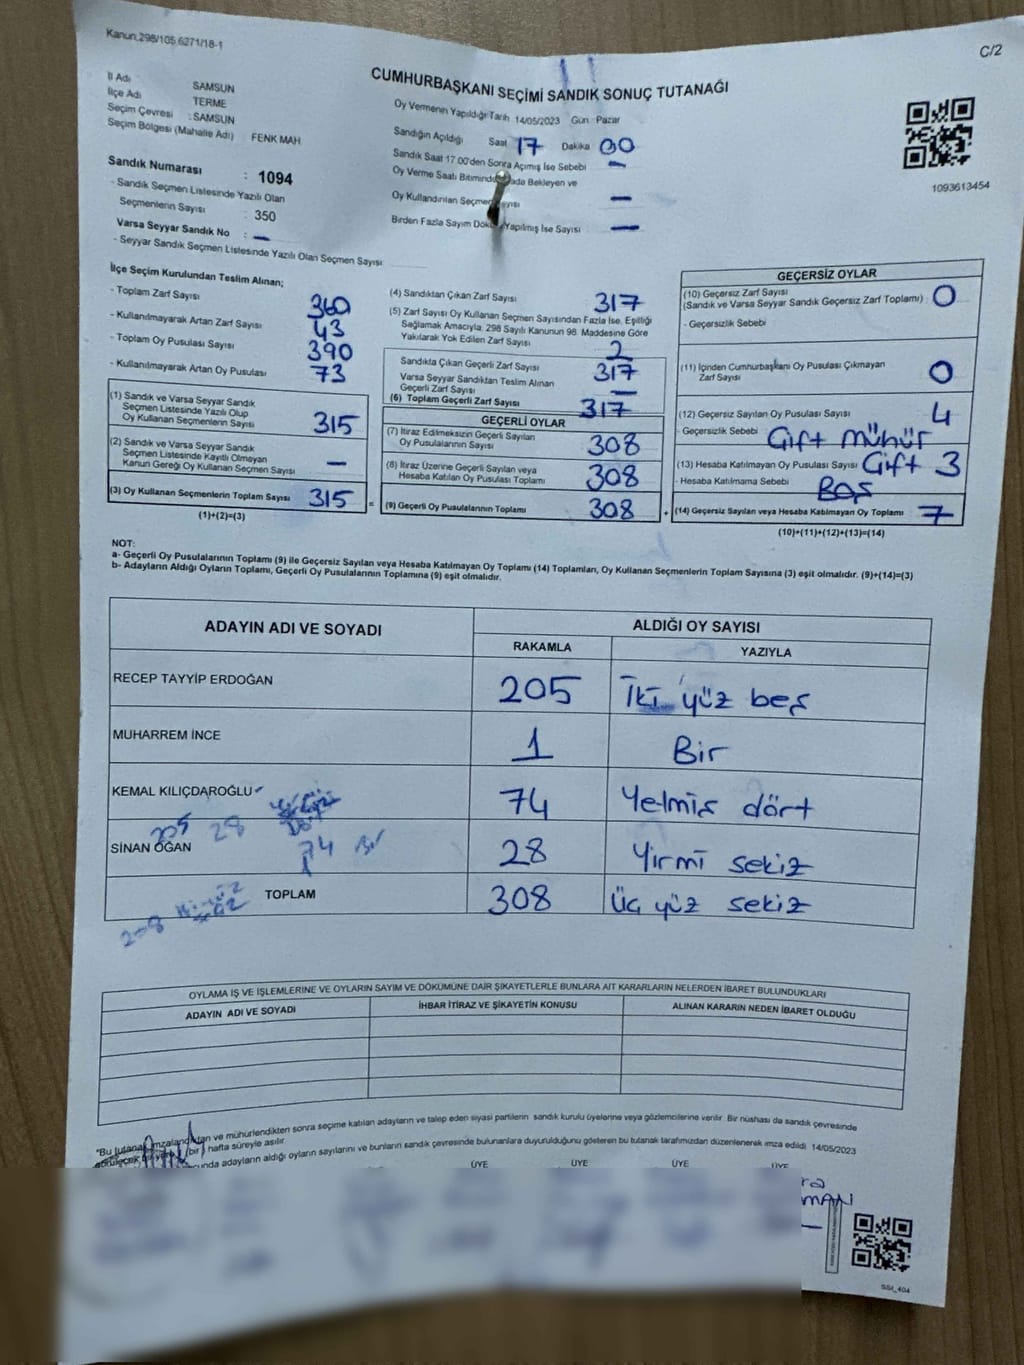 Kanun.298/105 6271/18-1
C/2
CUMHURBAŞKANI SEÇİMİ SANDIK SONUÇ TUTANAĞI
İl Adı : SAMSUN
İlçe Adı TERME
Seçim Çevresi : SAMSUN
Seçim Bölgesi (Mahalle Adı) FENK MAH
Oy Vermenin Yapıldığı Tarih 14/05/2023 Gün : Pazar
Sandığın Açıldığı Saat 17 Dakika 00
Sandık Saat 17.00'den Sonra Açımış İse Sebebi —
Oy Verme Saati Bitiminde Bekleyen ve
Oy Kullandırılan Seçmen Sayısı —
Birden Fazla Sayım Yapılmış İse Sayısı —
1093613454
Sandık Numarası : 1094
- Sandık Seçmen Listesinde Yazılı Olan
Seçmenlerin Sayısı : 350
Varsa Seyyar Sandık No : —
- Seyyar Sandık Seçmen Listesinde Yazılı Olan Seçmen Sayısı
İlçe Seçim Kurulundan Teslim Alınan;
- Toplam Zarf Sayısı 360
- Kullanılmayarak Artan Zarf Sayısı 43
- Toplam Oy Pusulası Sayısı 390
- Kullanılmayarak Artan Oy Pusulası 73
(1) Sandık ve Varsa Seyyar Sandık
Seçmen Listesinde Yazılı Olup
Oy Kullanan Seçmenlerin Sayısı 315
(2) Sandık ve Varsa Seyyar Sandık
Seçmen Listesinde Kayıtlı Olmayan
Kanun Gereği Oy Kullanan Seçmen Sayısı —
(3) Oy Kullanan Seçmenlerin Toplam Sayısı 315
(1)+(2)=(3)
=
(4) Sandıktan Çıkan Zarf Sayısı 317
(5) Zarf Sayısı Oy Kullanan Seçmen Sayısından Fazla İse, Eşitliği
Sağlamak Amacıyla, 298 Sayılı Kanunun 98. Maddesine Göre
Yakılarak Yok Edilen Zarf Sayısı 2
Sandıkta Çıkan Geçerli Zarf Sayısı 317
Varsa Seyyar Sandıktan Teslim Alınan
Geçerli Zarf Sayısı —
(6) Toplam Geçerli Zarf Sayısı 317
GEÇERLİ OYLAR
(7) İtiraz Edilmeksizin Geçerli Sayılan
Oy Pusulalarının Sayısı 308
(8) İtiraz Üzerine Geçerli Sayılan veya
Hesaba Katılan Oy Pusulası Toplamı 308
(9) Geçerli Oy Pusulalarının Toplamı 308
+
GEÇERSİZ OYLAR
(10) Geçersiz Zarf Sayısı
(Sandık ve Varsa Seyyar Sandık Geçersiz Zarf Toplamı) : 0
- Geçersizlik Sebebi
(11) İçinden Cumhurbaşkanı Oy Pusulası Çıkmayan
Zarf Sayısı 0
(12) Geçersiz Sayılan Oy Pusulası Sayısı 4
- Geçersizlik Sebebi Çift mühür
(13) Hesaba Katılmayan Oy Pusulası Sayısı Çift 3
- Hesaba Katılmama Sebebi Boş
(14) Geçersiz Sayılan veya Hesaba Katılmayan Oy Toplamı 7
(10)+(11)+(12)+(13)=(14)
NOT:
a- Geçerli Oy Pusulalarının Toplamı (9) ile Geçersiz Sayılan veya Hesaba Katılmayan Oy Toplamı (14) Toplamları, Oy Kullanan Seçmenlerin Toplam Sayısına (3) eşit olmalıdır. (9)+(14)=(3)
b- Adayların Aldığı Oyların Toplamı, Geçerli Oy Pusulalarının Toplamına (9) eşit olmalıdır.
ADAYIN ADI VE SOYADI ALDIĞI OY SAYISI
RAKAMLA YAZIYLA
RECEP TAYYİP ERDOĞAN 205 İki yüz beş
MUHARREM İNCE 1 Bir
KEMAL KILIÇDAROĞLU 74 Yetmiş dört
205 28
74 Bir
SİNAN OĞAN 28 Yirmi sekiz
TOPLAM 308 Üç yüz sekiz
OYLAMA İŞ VE İŞLEMLERİNE VE OYLARIN SAYIM VE DÖKÜMÜNE DAİR ŞİKAYETLERLE BUNLARA AİT KARARLARIN NELERDEN İBARET BULUNDUKLARI
ADAYIN ADI VE SOYADI İHBAR İTİRAZ VE ŞİKAYETİN KONUSU ALINAN KARARIN NEDEN İBARET OLDUĞU
"Bu tutanak imzalandıktan ve mühürlendikten sonra seçime katılan adayların ve talep eden siyasi partilerin sandık kurulu üyelerine veya gözlemcilerine verilir. Bir nüshası da sandık çevresinde
görülecek bir yere bir hafta süreyle asılır.
adayların aldığı oyların sayılarını ve bunların sandık çevresinde bulunanlara duyurulduğunu gösteren bu tutanak tarafımızdan düzenlenerek imza edildi. 14/05/2023
ÜYE ÜYE ÜYE ÜYE
SSI_404